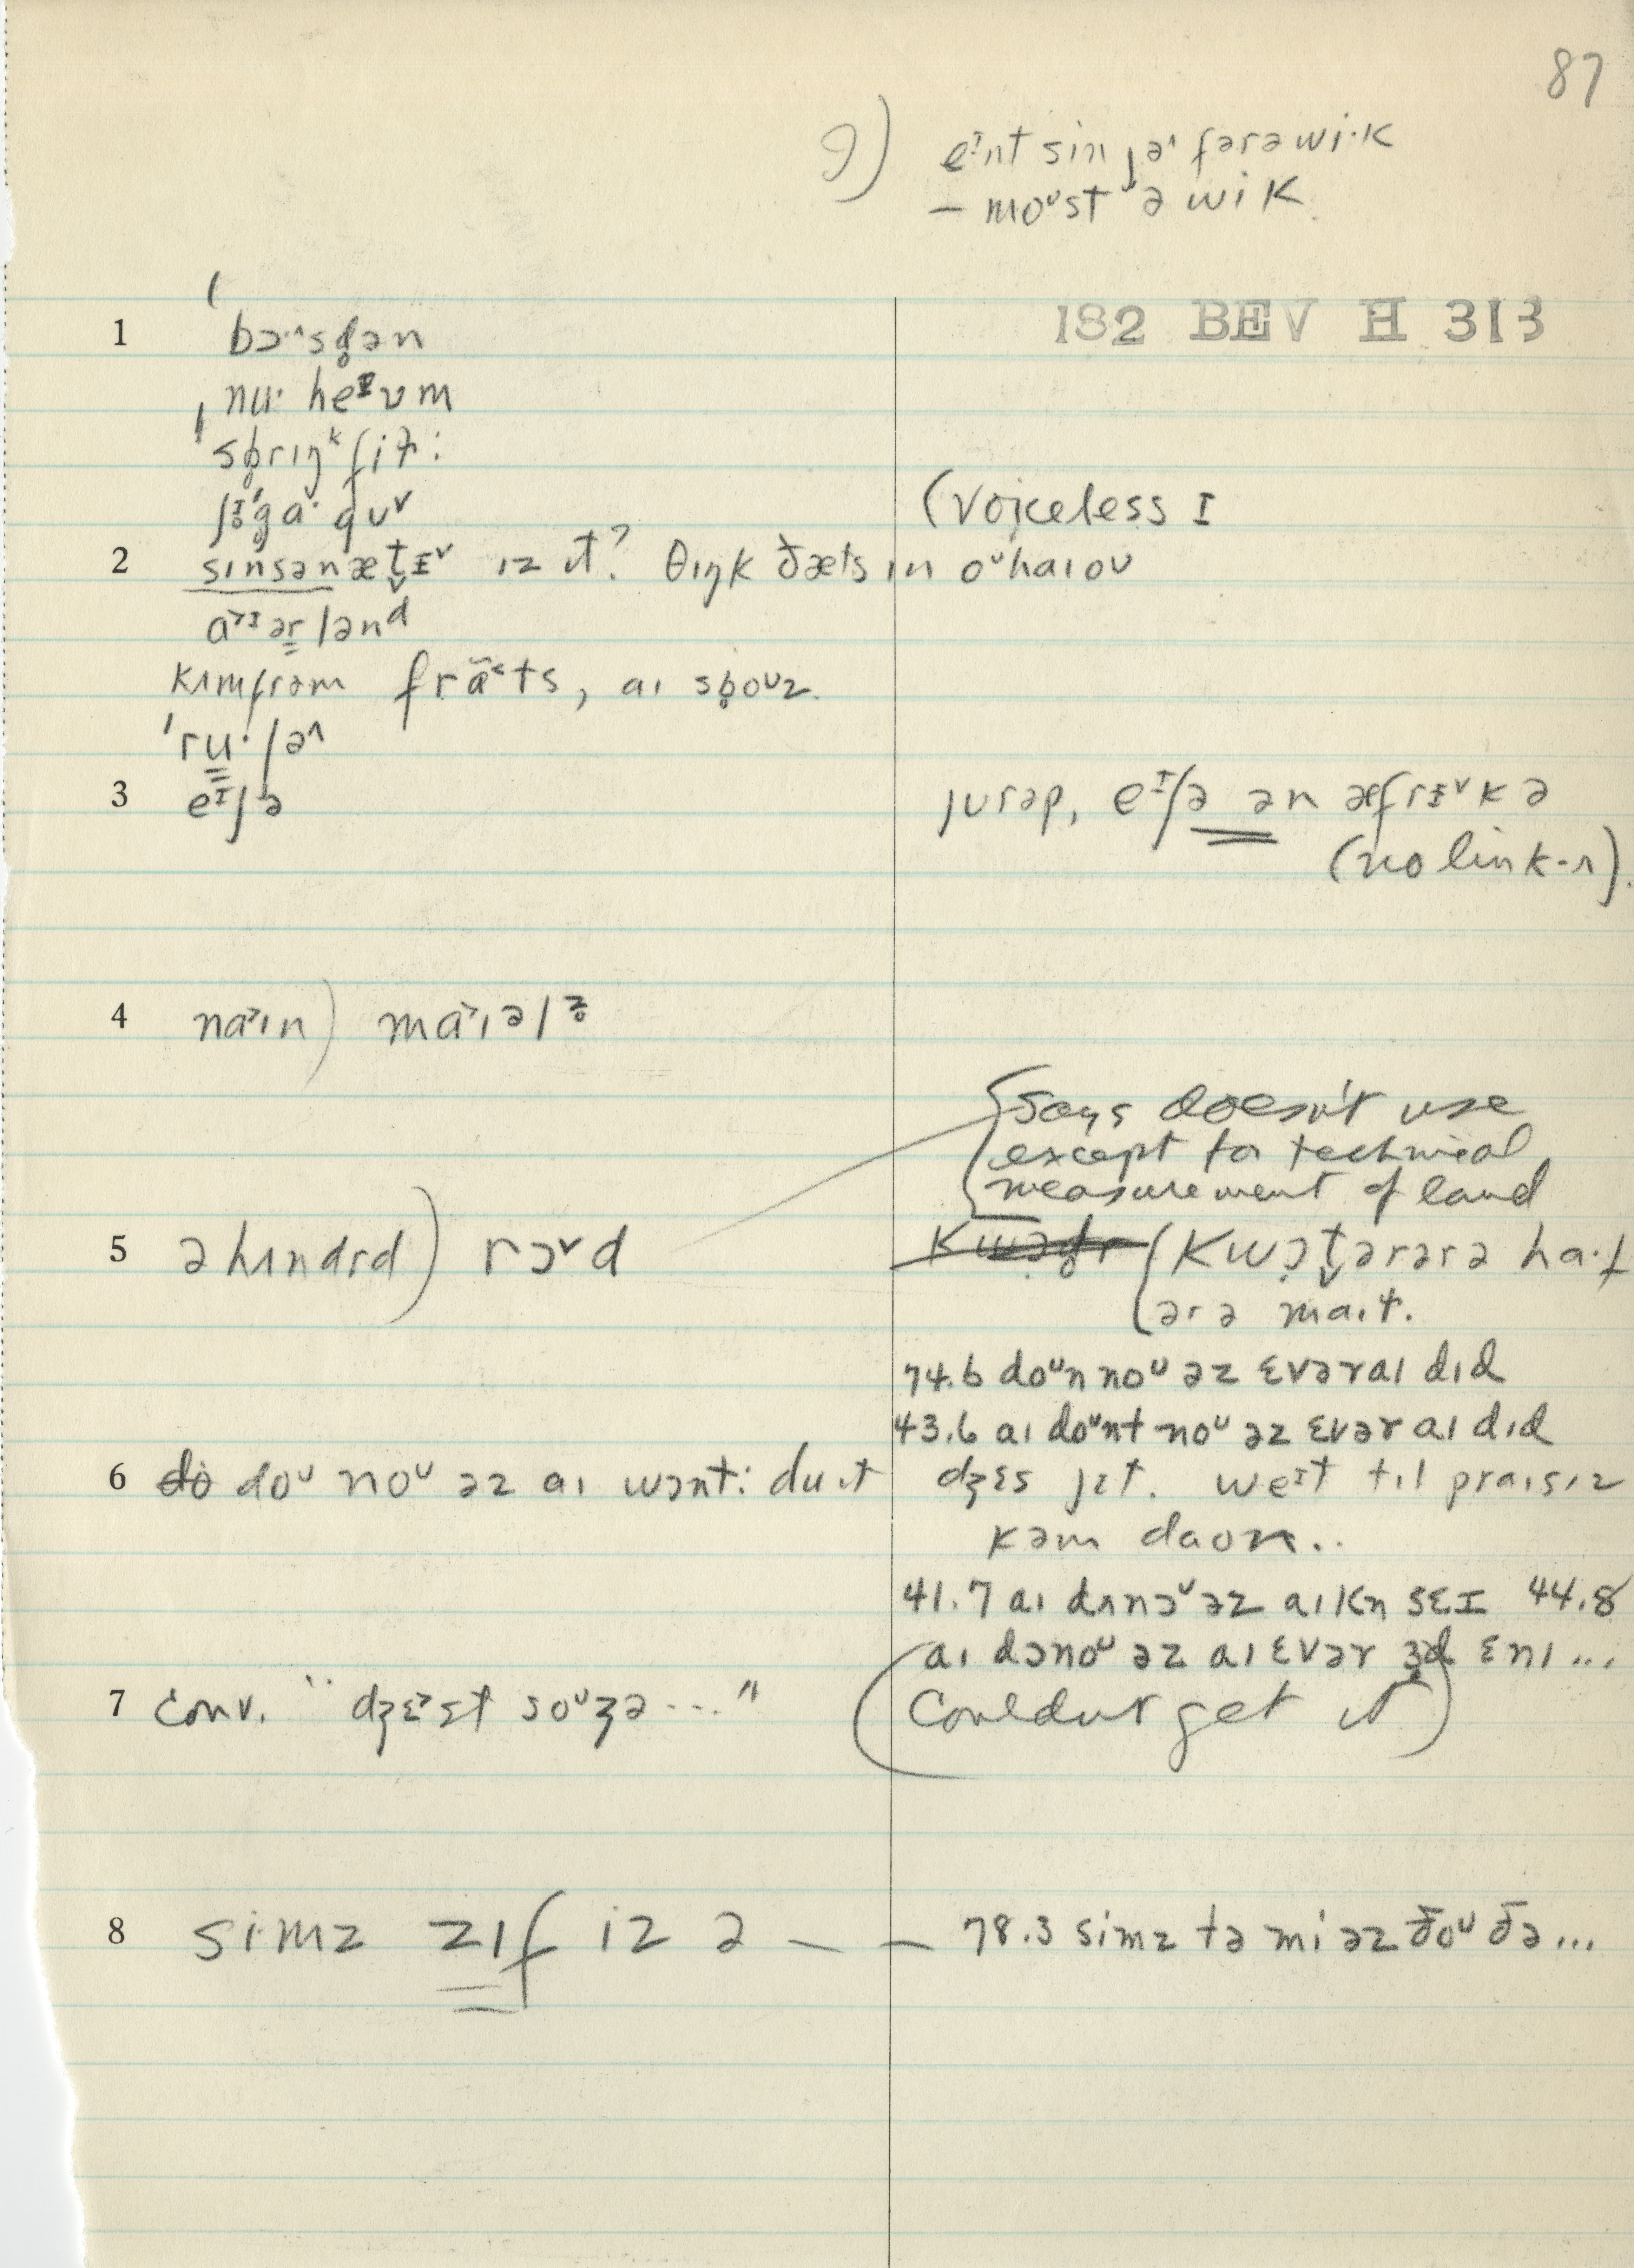 87
9) eᶦnt sin jəʳ fərə wi·k
— moᵘst ə wik.
182 BEV H 313
1 ˈbɔ·^sd̥ən
ˌnu· heɪvm
ˈsb̥rɪŋᵏ fiɫ:
ʃɪ̥ˈg̊ɑ· guᵛ
(voiceless ɪ
2 sɪnsənæt̬ɪᵛ ɪz ɪt? θɪŋk ðæts ɪn oᵘhaɪoʊ
a˃ɪərlənᵈ
kʌmfrəm frã˂ts, aɪ sb̥oᵘz.
ˈru·ʃəʌ
3 eᶦʃə
jurəp, eᶦʃə ən æfrɪᵛkə
(no link-r).
4 na˃ɪn) ma˃ɪəlz̥
Says doesn't use
except for technical
measurement of land
5 ə hʌndrd) rɔᵛd
(kwɔt̬ərərə ha·f
ərə maɪɫ.
74.6 doᵘn noᵘ əz ɛvər aɪ dɪd
43.6 aɪ doᵘnt noᵘ əz ɛvər aɪ dɪd
6 do doᵘ noᵘ əz aɪ wɔnt: du ɪt
dʒɛs jɪt. weᶦt tɪl praɪsɪz
kəm daʊn..
41.7 aɪ dʌnɔᵛ əz aɪ kn sɛɪ 44.8
aɪ dənoᵘ əz aɪ ɛvər ɜd ɛnɪ...
7 conv. "dʒɛ˃st soᵘʒə ..."
(Couldn't get it)
8 simz zɪf iz ə — — 78.3 simz tə mi əz ðoᵘ ðə...